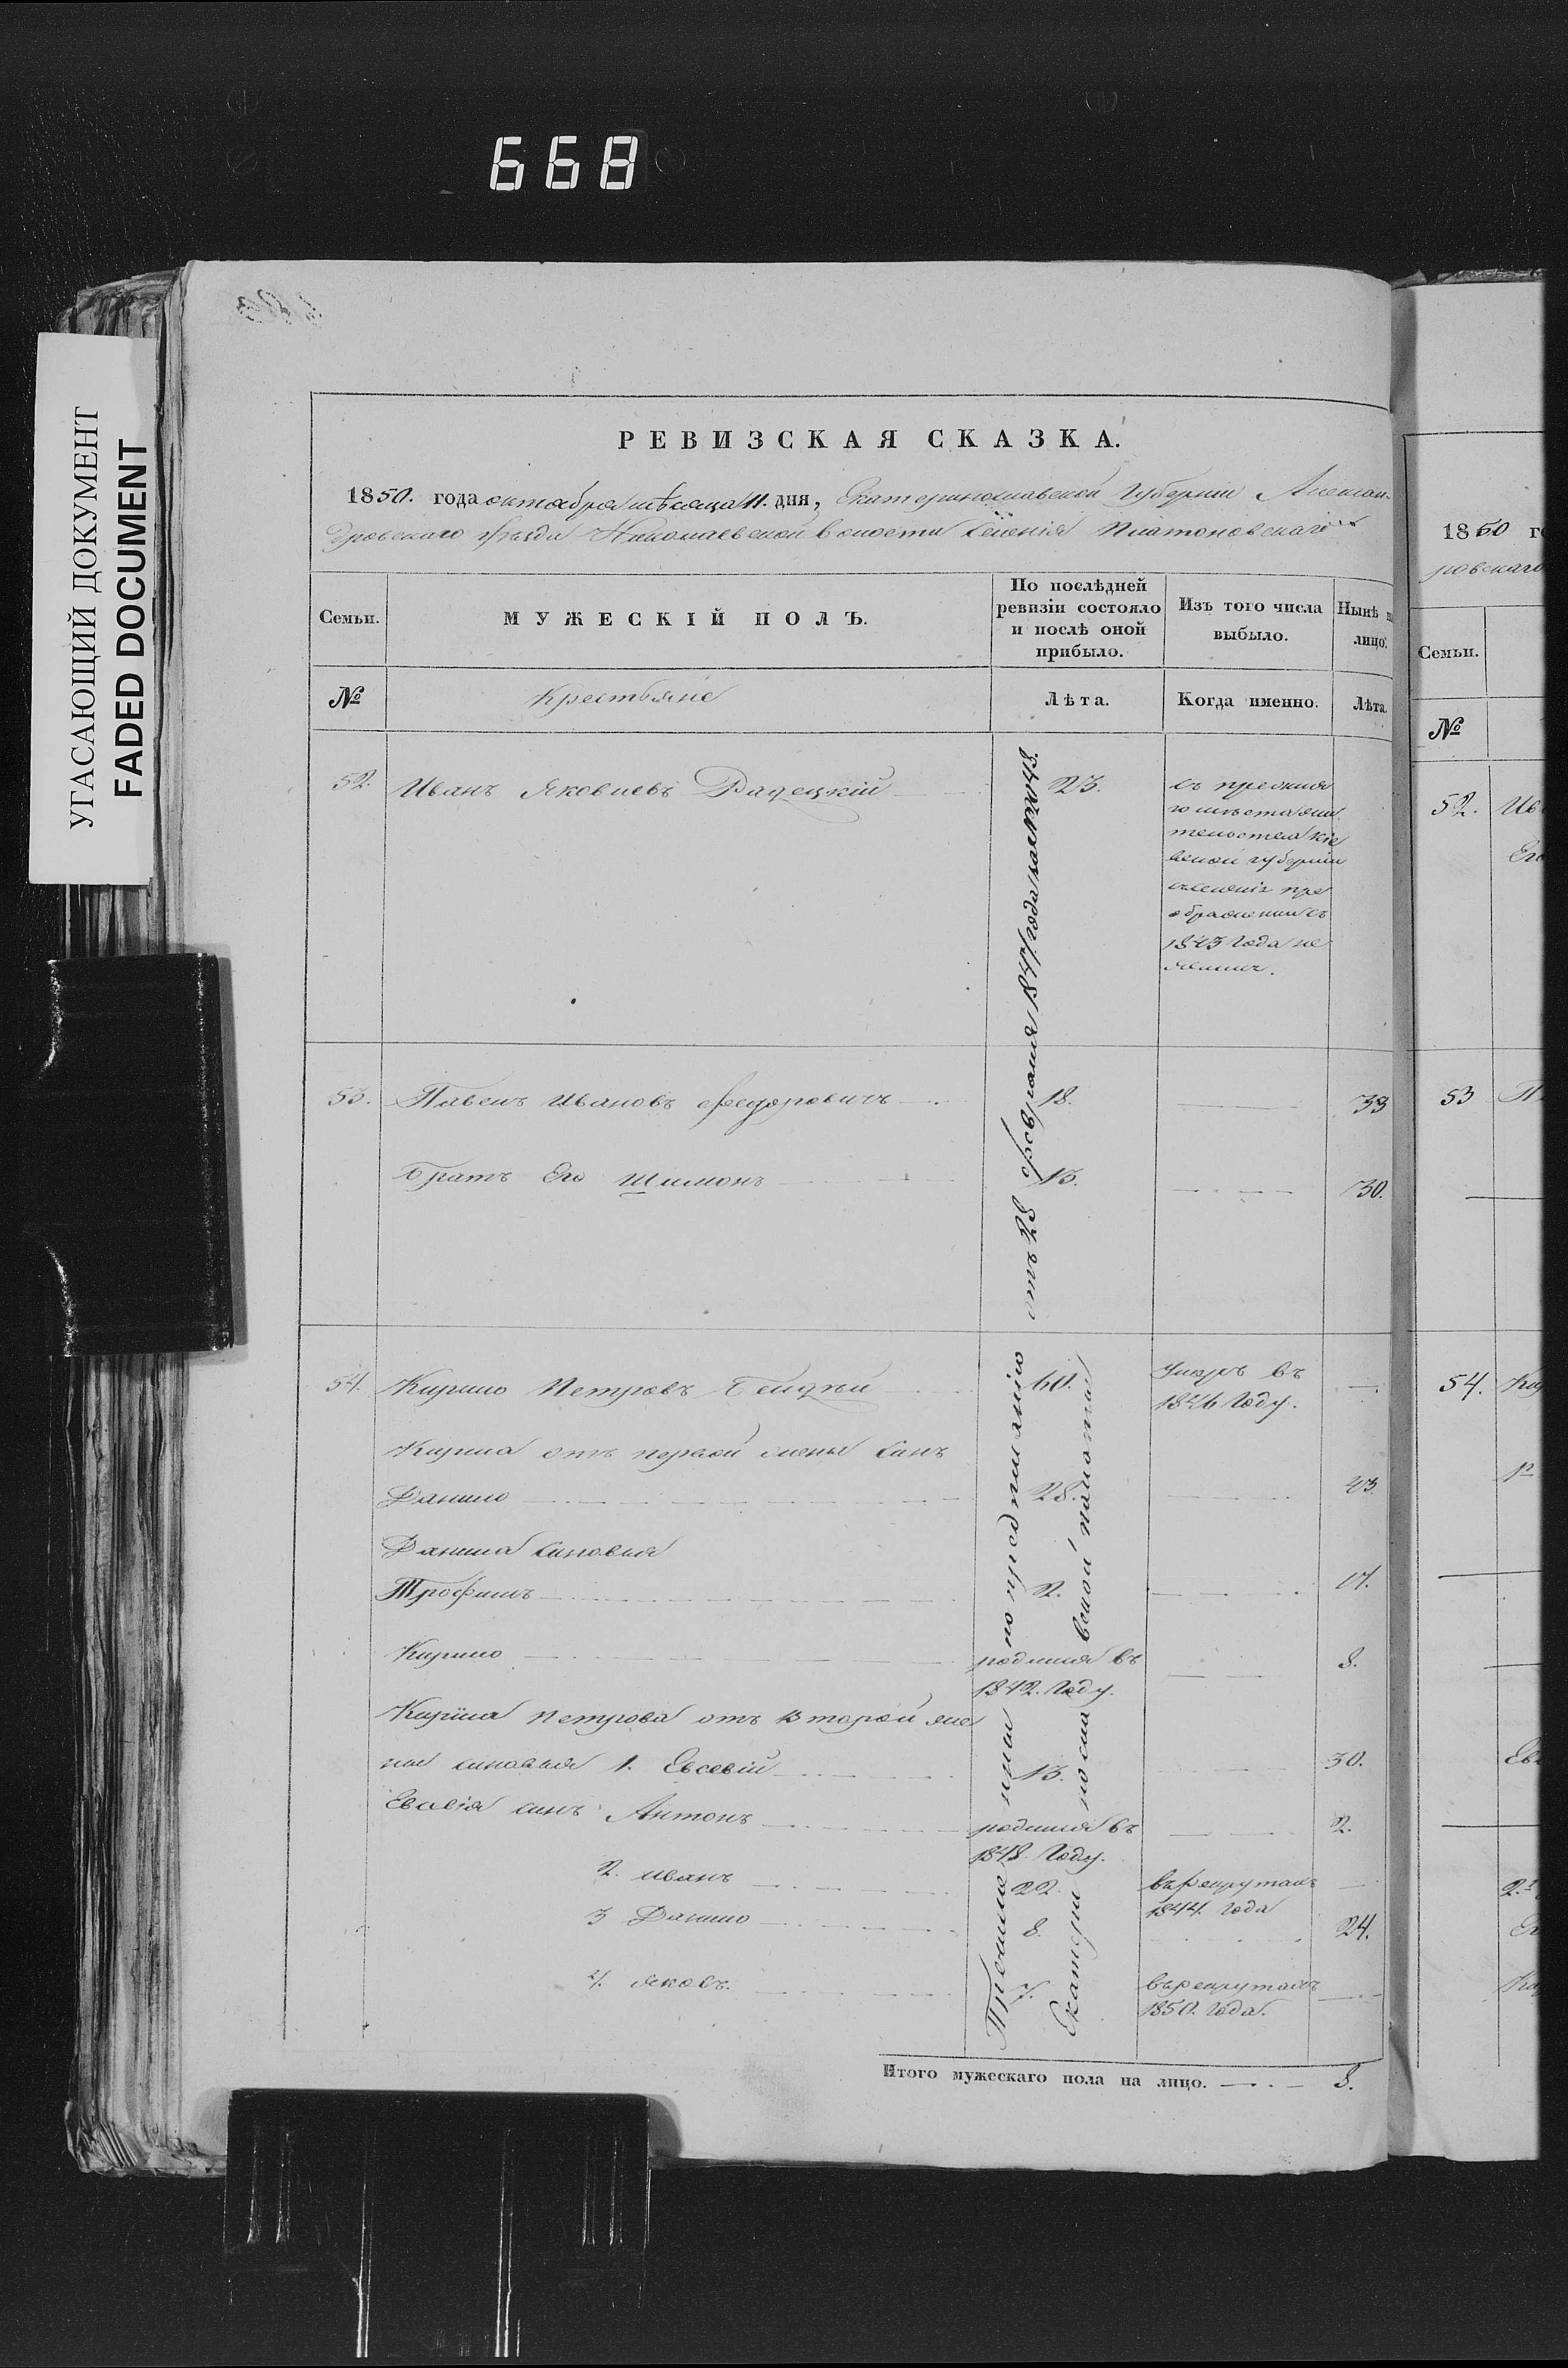 668
УГАСАЮЩИЙ ДОКУМЕНТ
FADED DOCUMENT
РЕВИЗСКАЯ СКАЗКА.
1850. года октября мѣсяца 11. дня, Екатеринославской Губерніи Алексан-
дровскаго уѣзда Николаевской волости Селенія Платоновскаго
Семьи.
МУЖЕСКІЙ ПОЛЪ.
По послѣдней
ревизіи состояло
и послѣ оной
прибыло.
Изъ того числа
выбыло.
Нынѣ
лицо.
№
Крестьяне
Лѣта.
Когда именно.
Лѣта.
52. Иванъ Яковлевъ Радецкій 23.
съ прежня
го мѣста жи
тельства Кіе
вской губерніи
селенія пре
ображенки съ
1843 года не
явился.
53. Павелъ Ивановъ Федоровичъ 18. 33
Братъ Его Шимонъ 13. 30.
54. Кирило Петровъ 60. умръ въ
1846 Году.
Кирила отъ первой жены Синъ
Данило 28. 43.
Данила Синовья
Трофимъ 2. 17.
Кирило родился въ 8.
1842. Году.
Кирила Петрова отъ второй же
ны синовья 1. Евсевій 13. 30.
Евсевія синъ Антонъ родился въ 2.
1848. Году.
2. Иванъ 22. въ рекрутахъ
1844. года
3 Данило 8. 24.
4. Яковъ. 7. въ рекрутахъ
1850. года.
отъ 28 февраля 1847 года за № 1048.
по предписанію
Екатери
Итого мужескаго пола на лицо. 8.
1850
ровскаго
Семьи.
№
52.
53
54.